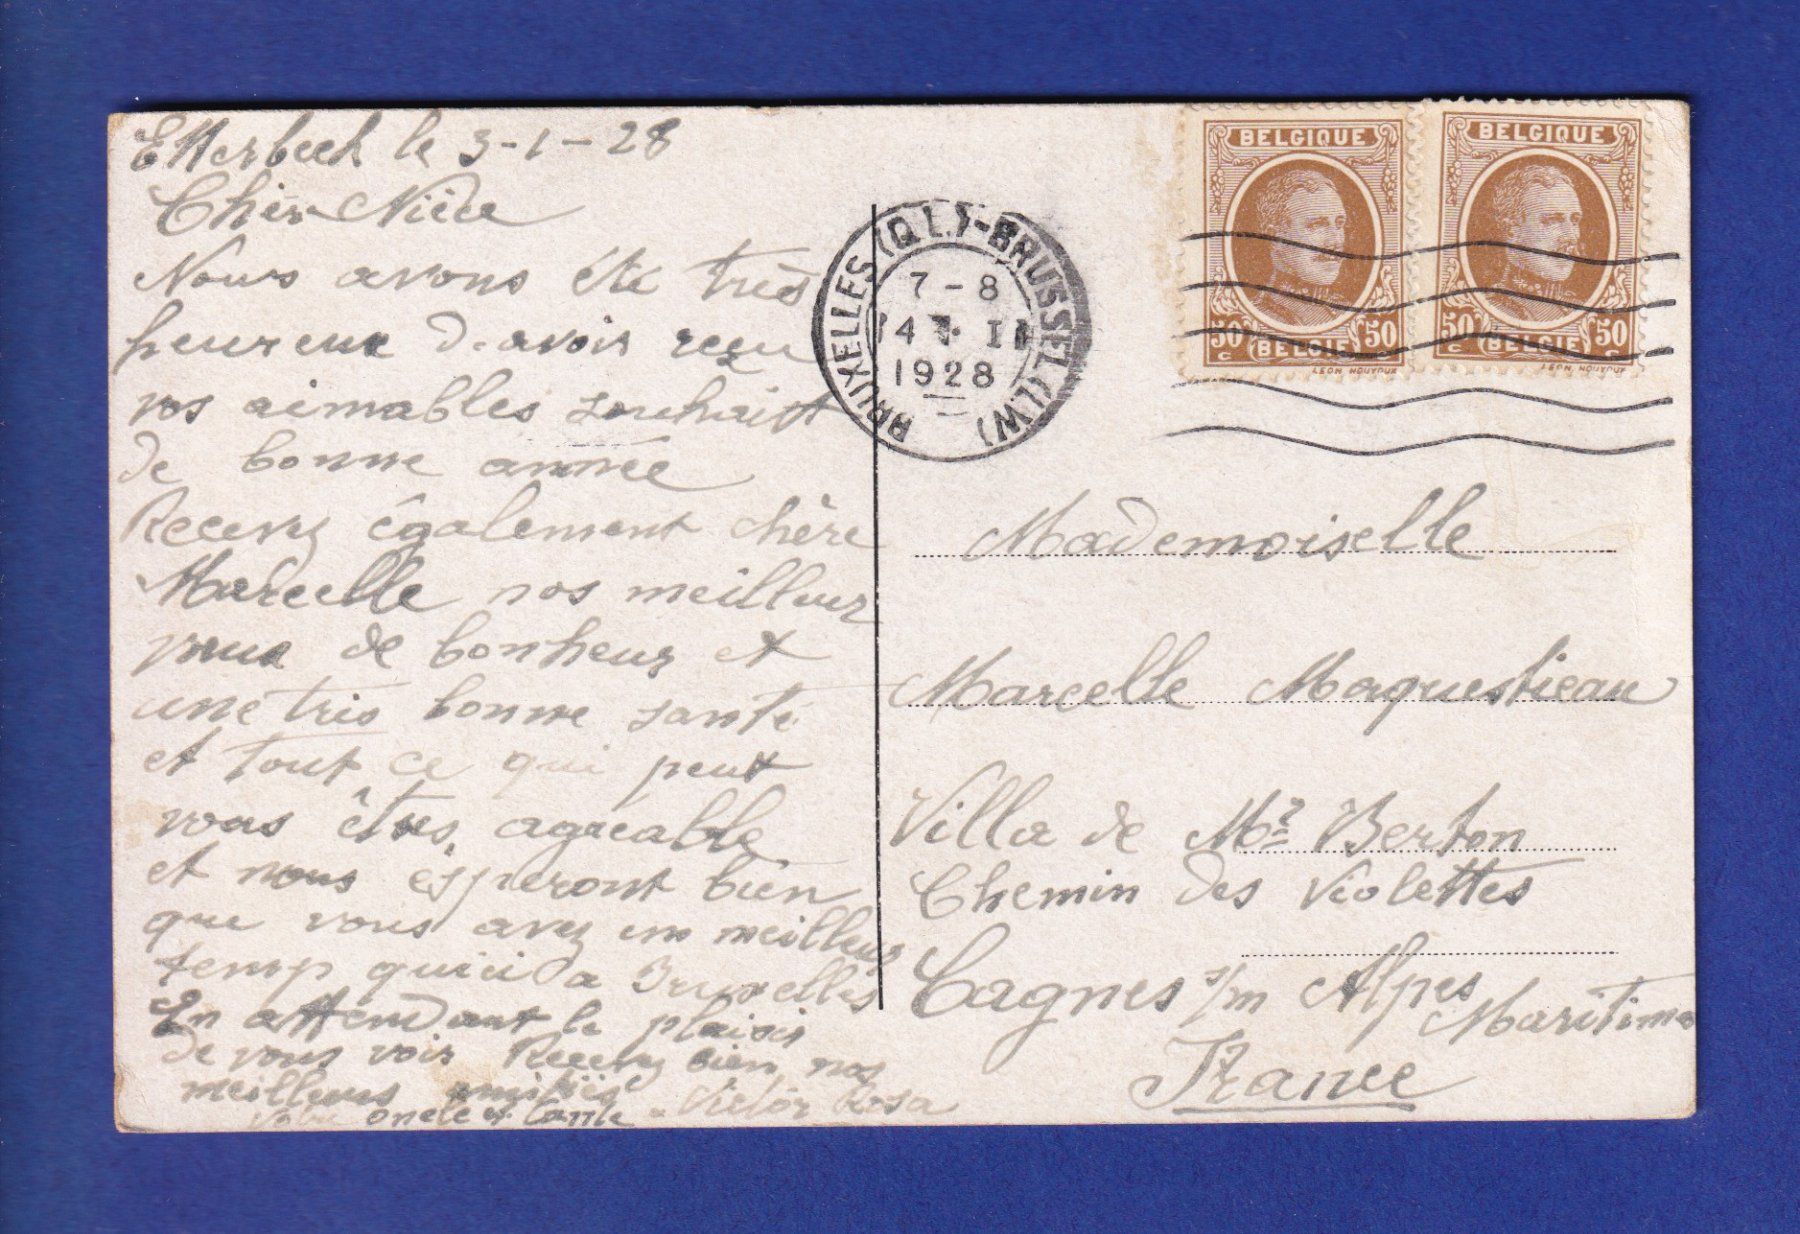 Etterbeek le 3-1-28
Cher Nièce
Nous avons été très
heureux d'avoir reçu
vos aimables souhaist
de bonne année
Recevez également chère
Marcelle nos meilleur
vœux de bonheur et
une tres bonne santé
et tout ce qui peut
vous êtres agreable
et nous ésperont bien
que vous avez un meilleur
temp qu'ici a Bruxelles
En attendant le plaisir
de vous voir Recevez bien nos
meilleurs amitiés
Votre oncle et tante Victor Rosa
BRUXELLES (Q.L.)-BRUSSEL (L.W)
7-8
4 I
1928
BELGIQUE
50 50
c c
BELGIE
LEON HOUYOUX
BELGIQUE
50 50
c c
BELGIE
LEON HOUYOUX
Mademoiselle
Marcelle Maquestieau
Villa de Mr Berton
Chemin des Violettes
Cagnes s/m Alpes
Maritime
France